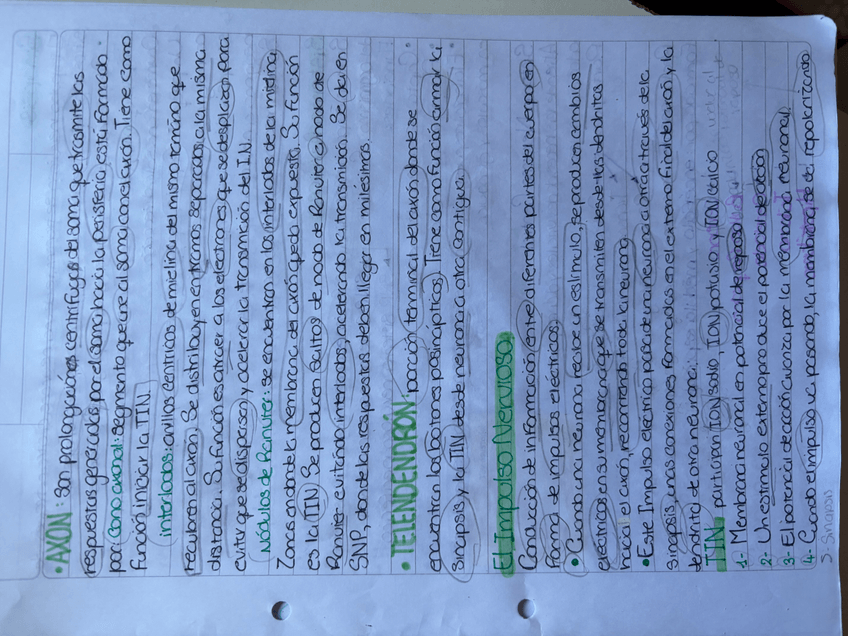 • AXON: son prolongaciones centrífugas del soma que tramite las
respuestas generadas por el soma hacia la periferia. está formado
por: Cono axonal: segmento que une al soma con el axón. Tiene como
función iniciar la TIN.
interlodos: anillos céntricos de mielina del mismo tamaño que
recubren al axón. Se distribuyen en tramos separados a la misma
distancia. Su función es atraer a los electrones que se desplazan para
evitar que se dispersen y acelerar la transmisión del IN.
Nódulos de Ranvier: se encuentran en los interlodos de la mielina
Zonas en donde la membrana del axón queda expuesta. Su función
es la TIN. Se producen saltos de nodo de Ranvier a nodo de
Ranvier evitando interlodos, acelerando la transmisión. Se da en
SNP, donde las respuestas deben llegar en milésimas.
• TELENDENDRÓN: porción terminal del axón donde se
encuentran los botones posinápticos. Tiene como función armar la
sinapsis y la TIN desde neurona a otra contigua.
El Impulso Nervioso
Conducción de información entre diferentes partes del cuerpo en
forma de impulsos eléctricos.
• Cuando una neurona recibe un estímulo, se producen cambios
eléctricos en su membrana que se transmiten desde las dendritas
hacia el axón, recorriendo toda la neurona
• Este Impulso eléctrico pasa de una neurona a otra a través de la
sinapsis, unas conexiones formadas en el extremo final del axón y la
dendrita de otra neurona.
TIN participan ION sodio, ION potasio y ION calcio
1- Membrana neuronal en potencial de reposo
2- Un estimulo externo produce el potencial de acción
3- El potencial de acción avanza por la membrana neuronal.
4- Cuando el impulso va pasando, la membrana se va repolarizando
5-